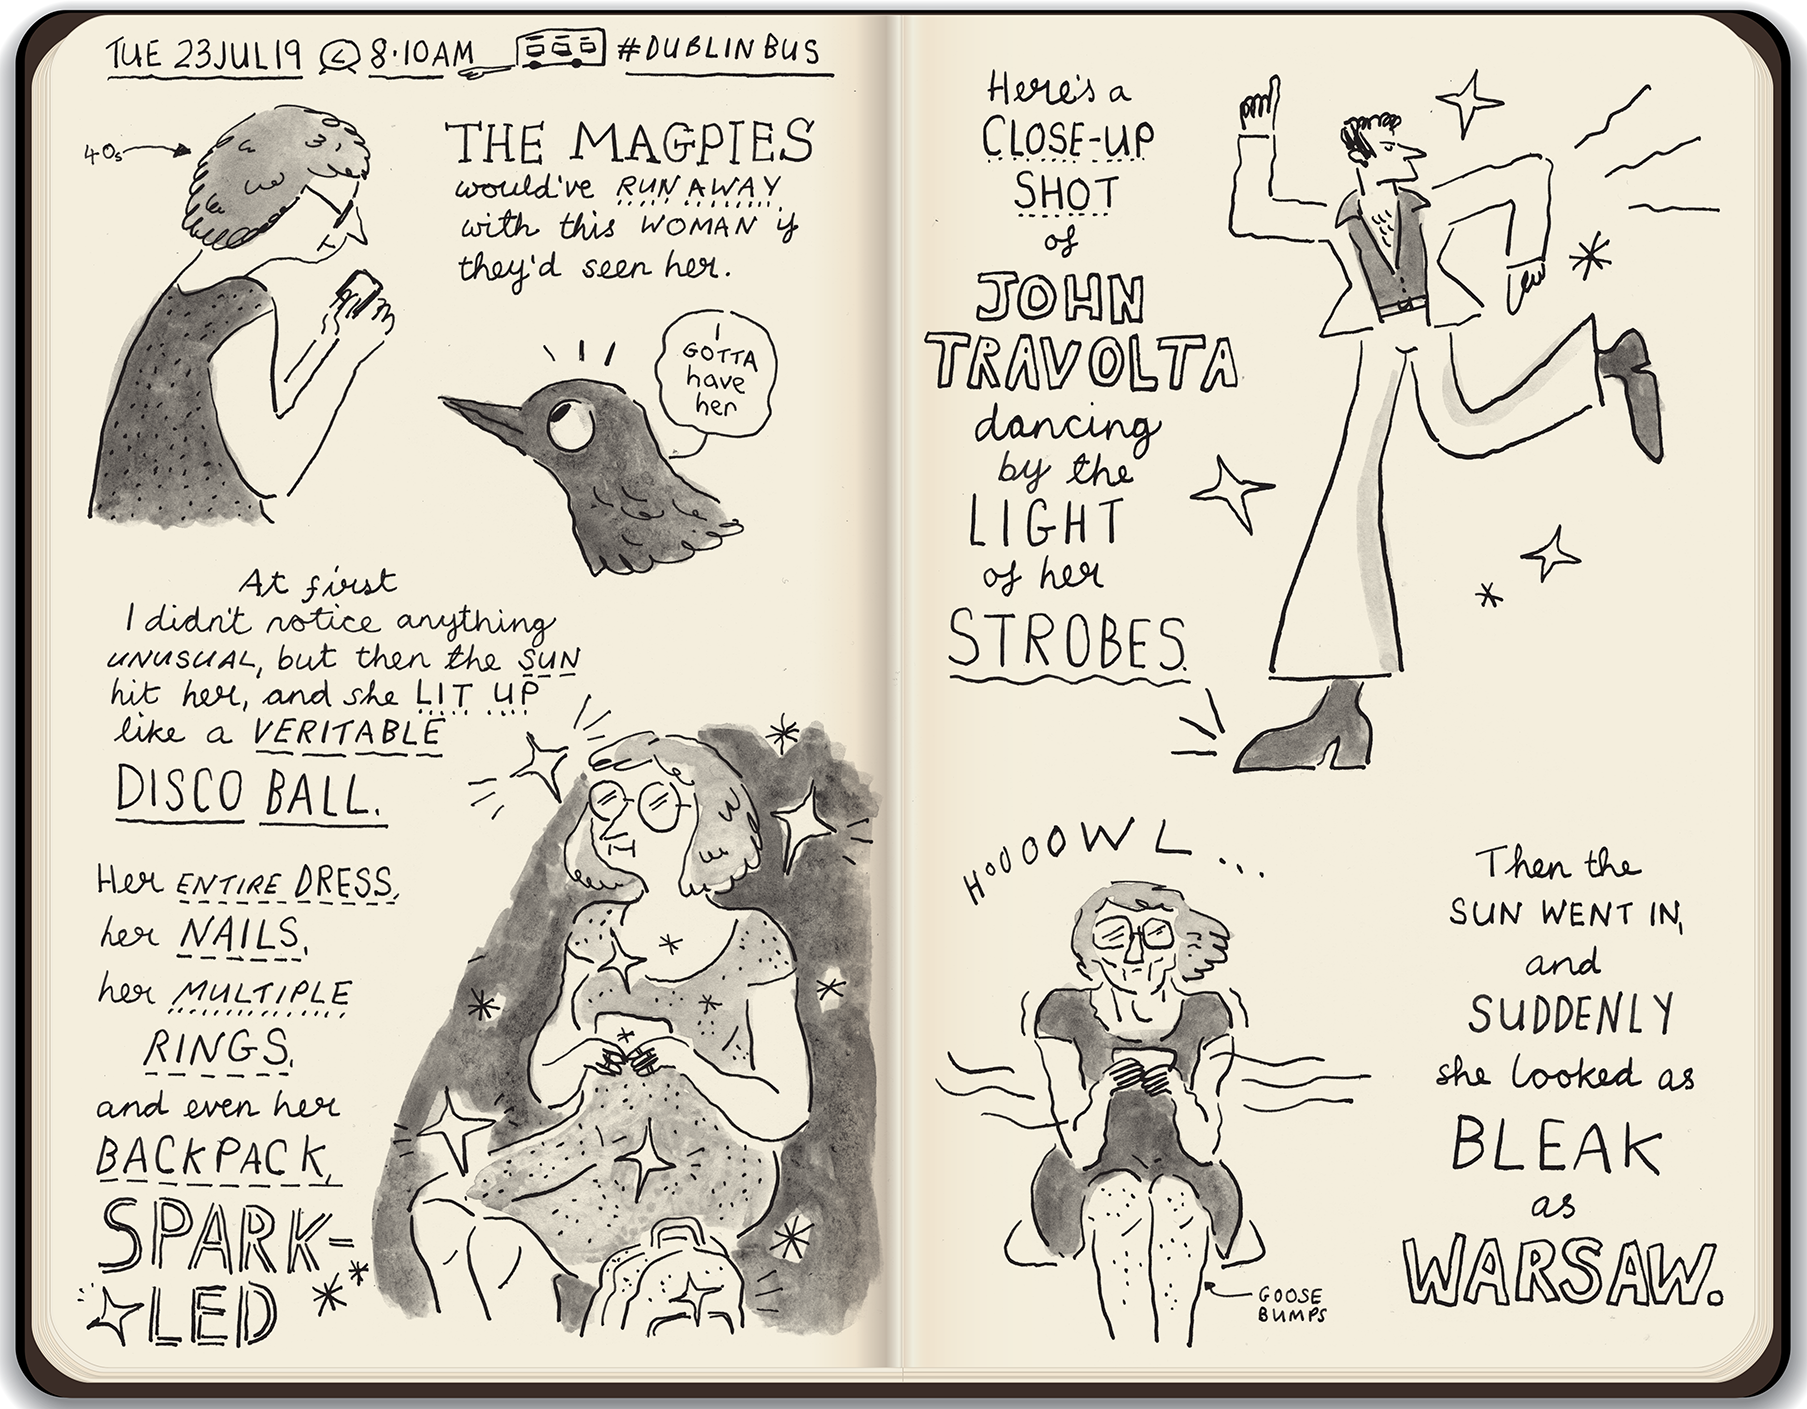 TUE 23JUL19 8·10AM #DUBLINBUS
40s
THE MAGPIES
would've RUN AWAY
with this WOMAN if
they'd seen her.
I
GOTTA
have
her
At first
I didn't notice anything
UNUSUAL, but then the SUN
hit her, and she LIT UP
like a VERITABLE
DISCO BALL.
Her ENTIRE DRESS,
her NAILS,
her MULTIPLE
RINGS,
and even her
BACKPACK,
SPARK-
LED
Here's a
CLOSE-UP
SHOT
of
JOHN
TRAVOLTA
dancing
by the
LIGHT
of her
STROBES.
HOOOOWL...
Then the
SUN WENT IN,
and
SUDDENLY
she looked as
BLEAK
as
WARSAW.
GOOSE
BUMPS